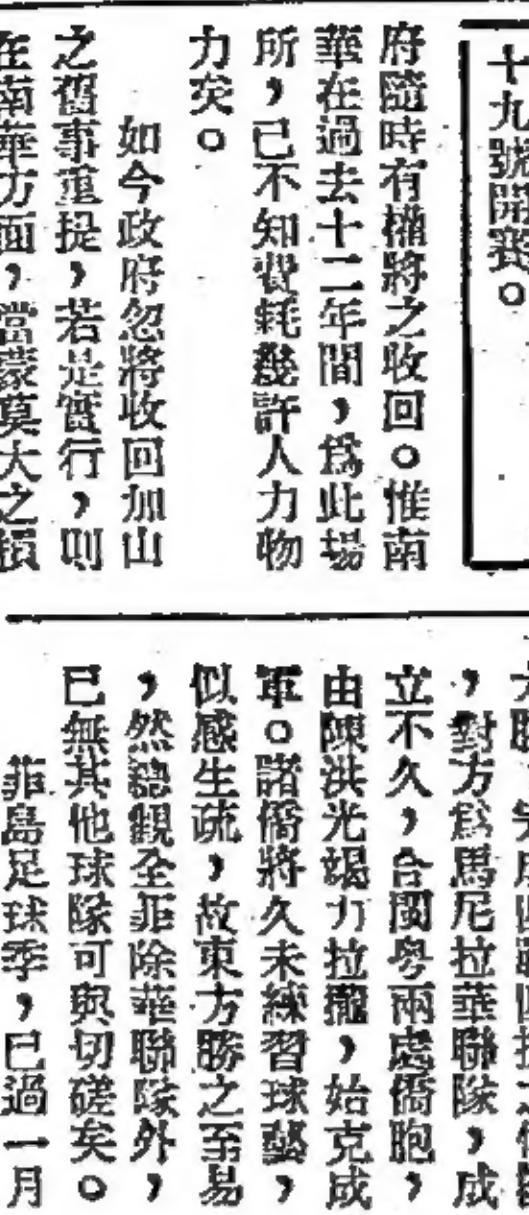 十九號開賽。
府隨時有權將之收回。惟南
華在過去十二年間，爲此場
所，已不知費耗幾許人力物
力矣。
如今政府忽將收回加山
之舊事重提，若是實行，則
在南華方面，當蒙莫大之損
，對方爲馬尼拉華聯隊，成
立不久，合閩粵兩處僑胞，
由陳洪光竭力拉攏，始克成
軍。諸僑將久未練習球藝，
似感生疏，故東方勝之至易
，然總觀全菲除華聯隊外，
已無其他球隊可與切磋矣。
菲島足球季，已過一月